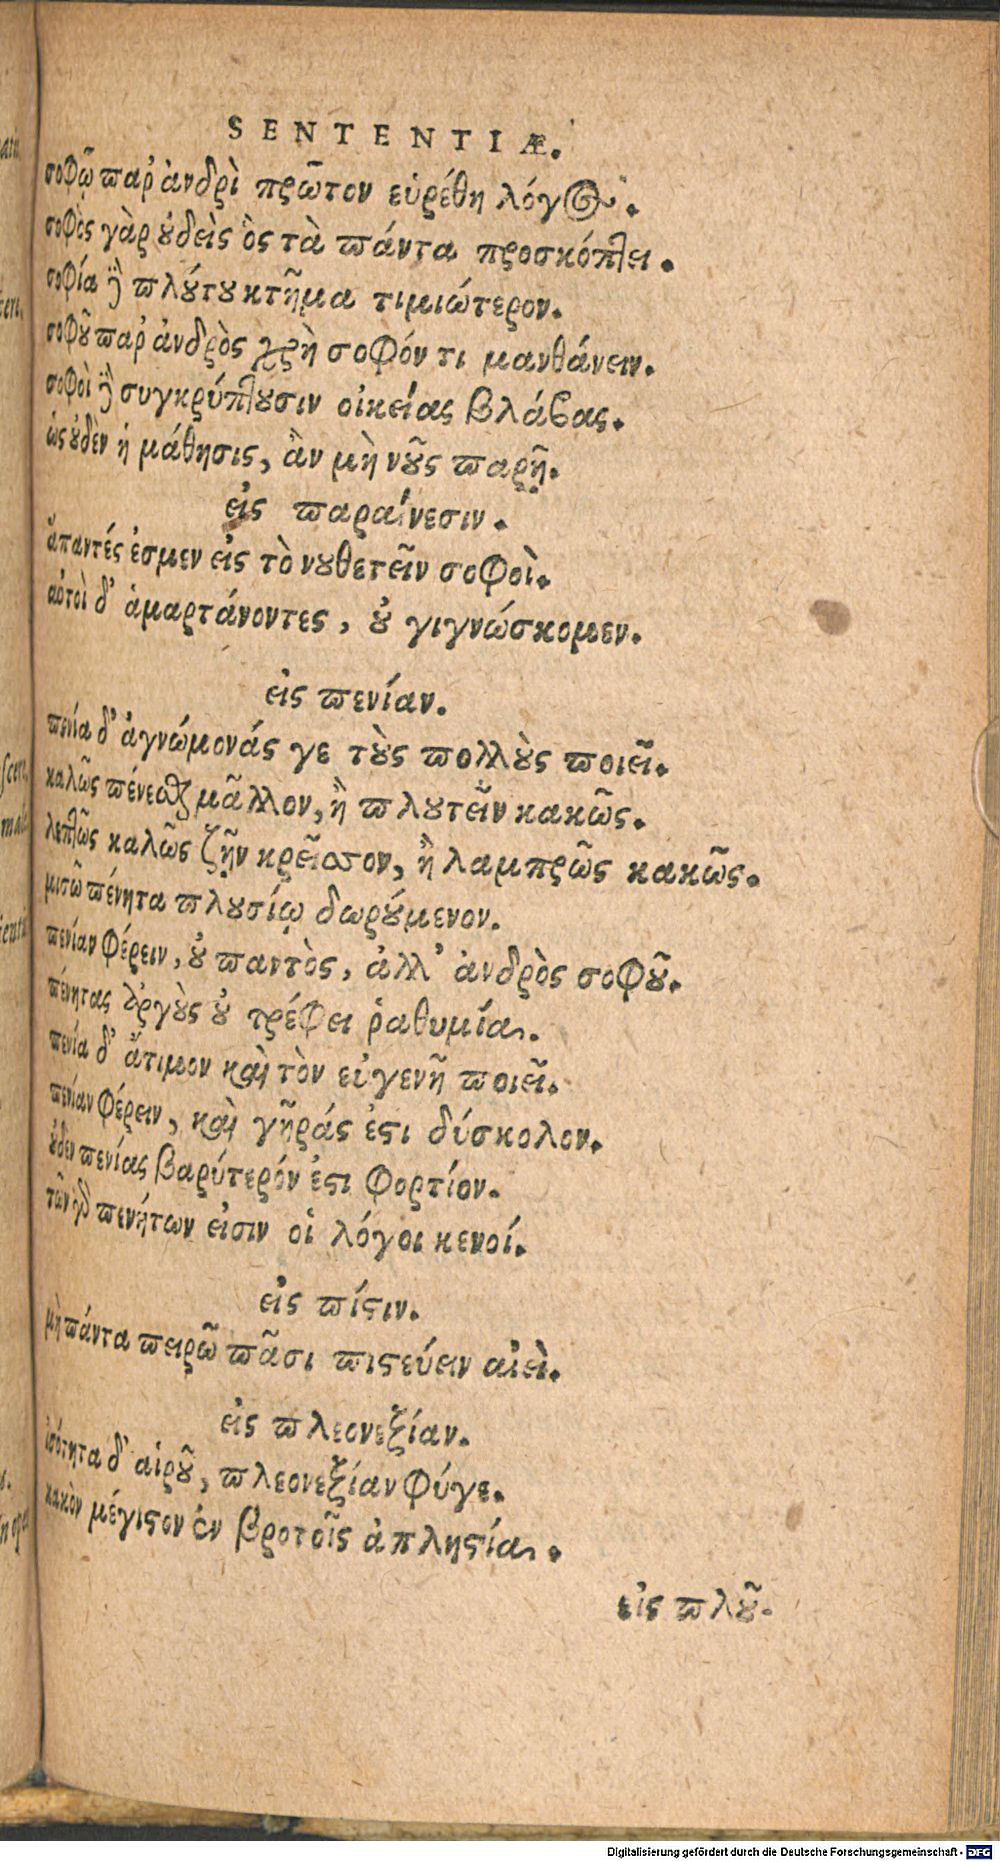 SENTENTIÆ.
σοφῷ παρ' ἀνδρὶ πρῶτον εὑρέθη λόγος.
σοφὸς γὰρ οὐδεὶς ὃς τὰ πάντα προσκόπτει.
σοφία γὰρ πλούτου κτῆμα τιμιώτερον.
σοφοῦ παρ' ἀνδρὸς χρὴ σοφόν τι μανθάνειν.
σοφοὶ γὰρ συγκρύπτουσιν οἰκείας βλάβας.
ὡς οὐδὲν ἡ μάθησις, ἂν μὴ νοῦς παρῇ.
εἰς παραίνεσιν.
ἅπαντές ἐσμεν εἰς τὸ νουθετεῖν σοφοὶ.
αὐτοὶ δ' ἁμαρτάνοντες, οὐ γιγνώσκομεν.
εἰς πενίαν.
πενία δ' ἀγνώμονάς γε τοὺς πολλοὺς ποιεῖ.
καλῶς πένεσθαι μᾶλλον, ἢ πλουτεῖν κακῶς.
λεπτῶς καλῶς ζῇν κρεῖσσον, ἢ λαμπρῶς κακῶς.
μισῶ πένητα πλουσίῳ δωρούμενον.
πενίαν φέρειν, οὐ παντὸς, ἀλλ' ἀνδρὸς σοφοῦ.
πένητας ἀργοὺς οὐ τρέφει ῥαθυμία.
πενία δ' ἄτιμον καὶ τὸν εὐγενῆ ποιεῖ.
πενίαν φέρειν, καὶ γῆράς ἐστι δύσκολον.
οὐδὲν πενίας βαρύτερόν ἐστι φορτίον.
τῶν γὰρ πενήτων εἰσιν οἱ λόγοι κενοί.
εἰς πίστιν.
μὴ πάντα πειρῶ πᾶσι πιστεύειν αἰεὶ.
εἰς πλεονεξίαν.
ἰσότητα δ' αἱροῦ, πλεονεξίαν φύγε.
κακὸν μέγιστον ἐν βροτοῖς ἀπληστία.
εἰς πλοῦ-
Digitalisierung gefördert durch die Deutsche Forschungsgemeinschaft - DFG